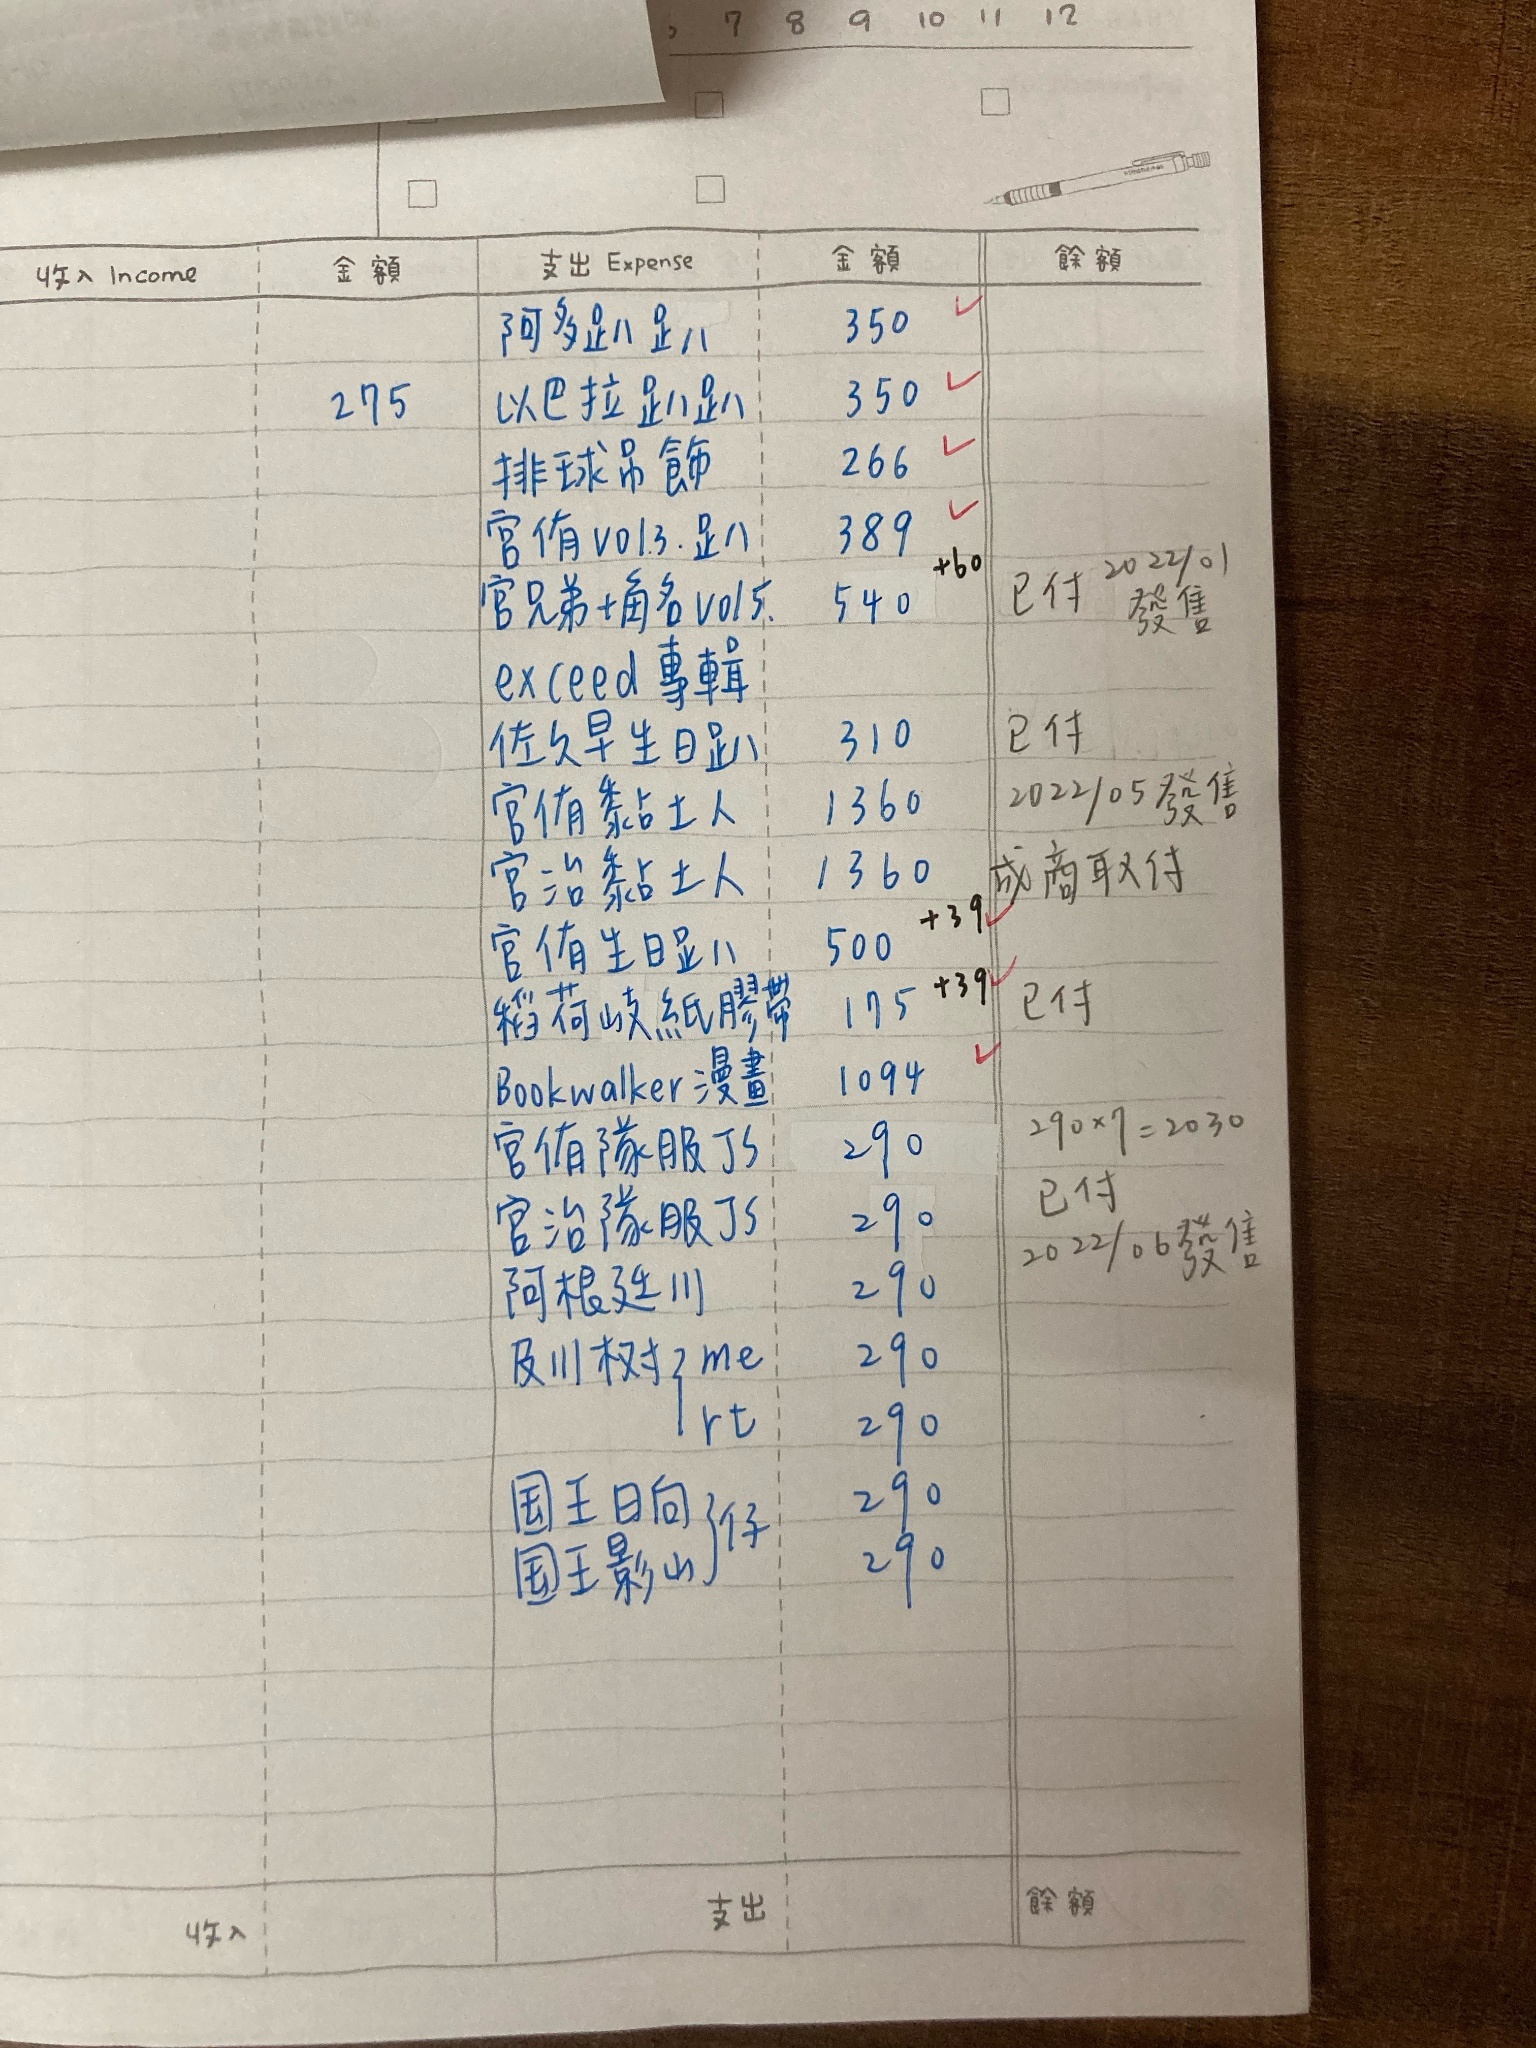 7 8 9 10 11 12
收入 Income 金額 支出 Expense 金額 餘額
阿多趴趴 350
275 以巴拉趴趴 350
排球吊飾 266
宮侑vol3.趴 389
宮兄弟+角名vol5. 540 +60 已付 2022/01 發售
exceed專輯
佐久早生日趴 310 已付
宮侑黏土人 1360 2022/05發售
宮治黏土人 1360 成商取付
宮侑生日趴 500 +39
稻荷崎紙膠帶 175 +39 已付
Bookwalker漫畫 1094
宮侑隊服JS 290 290×7=2030
宮治隊服JS 290 已付
阿根廷川 290 2022/06發售
及川树 me 290
rt 290
国王日向 290
仔
国王影山 290
收入 支出 餘額